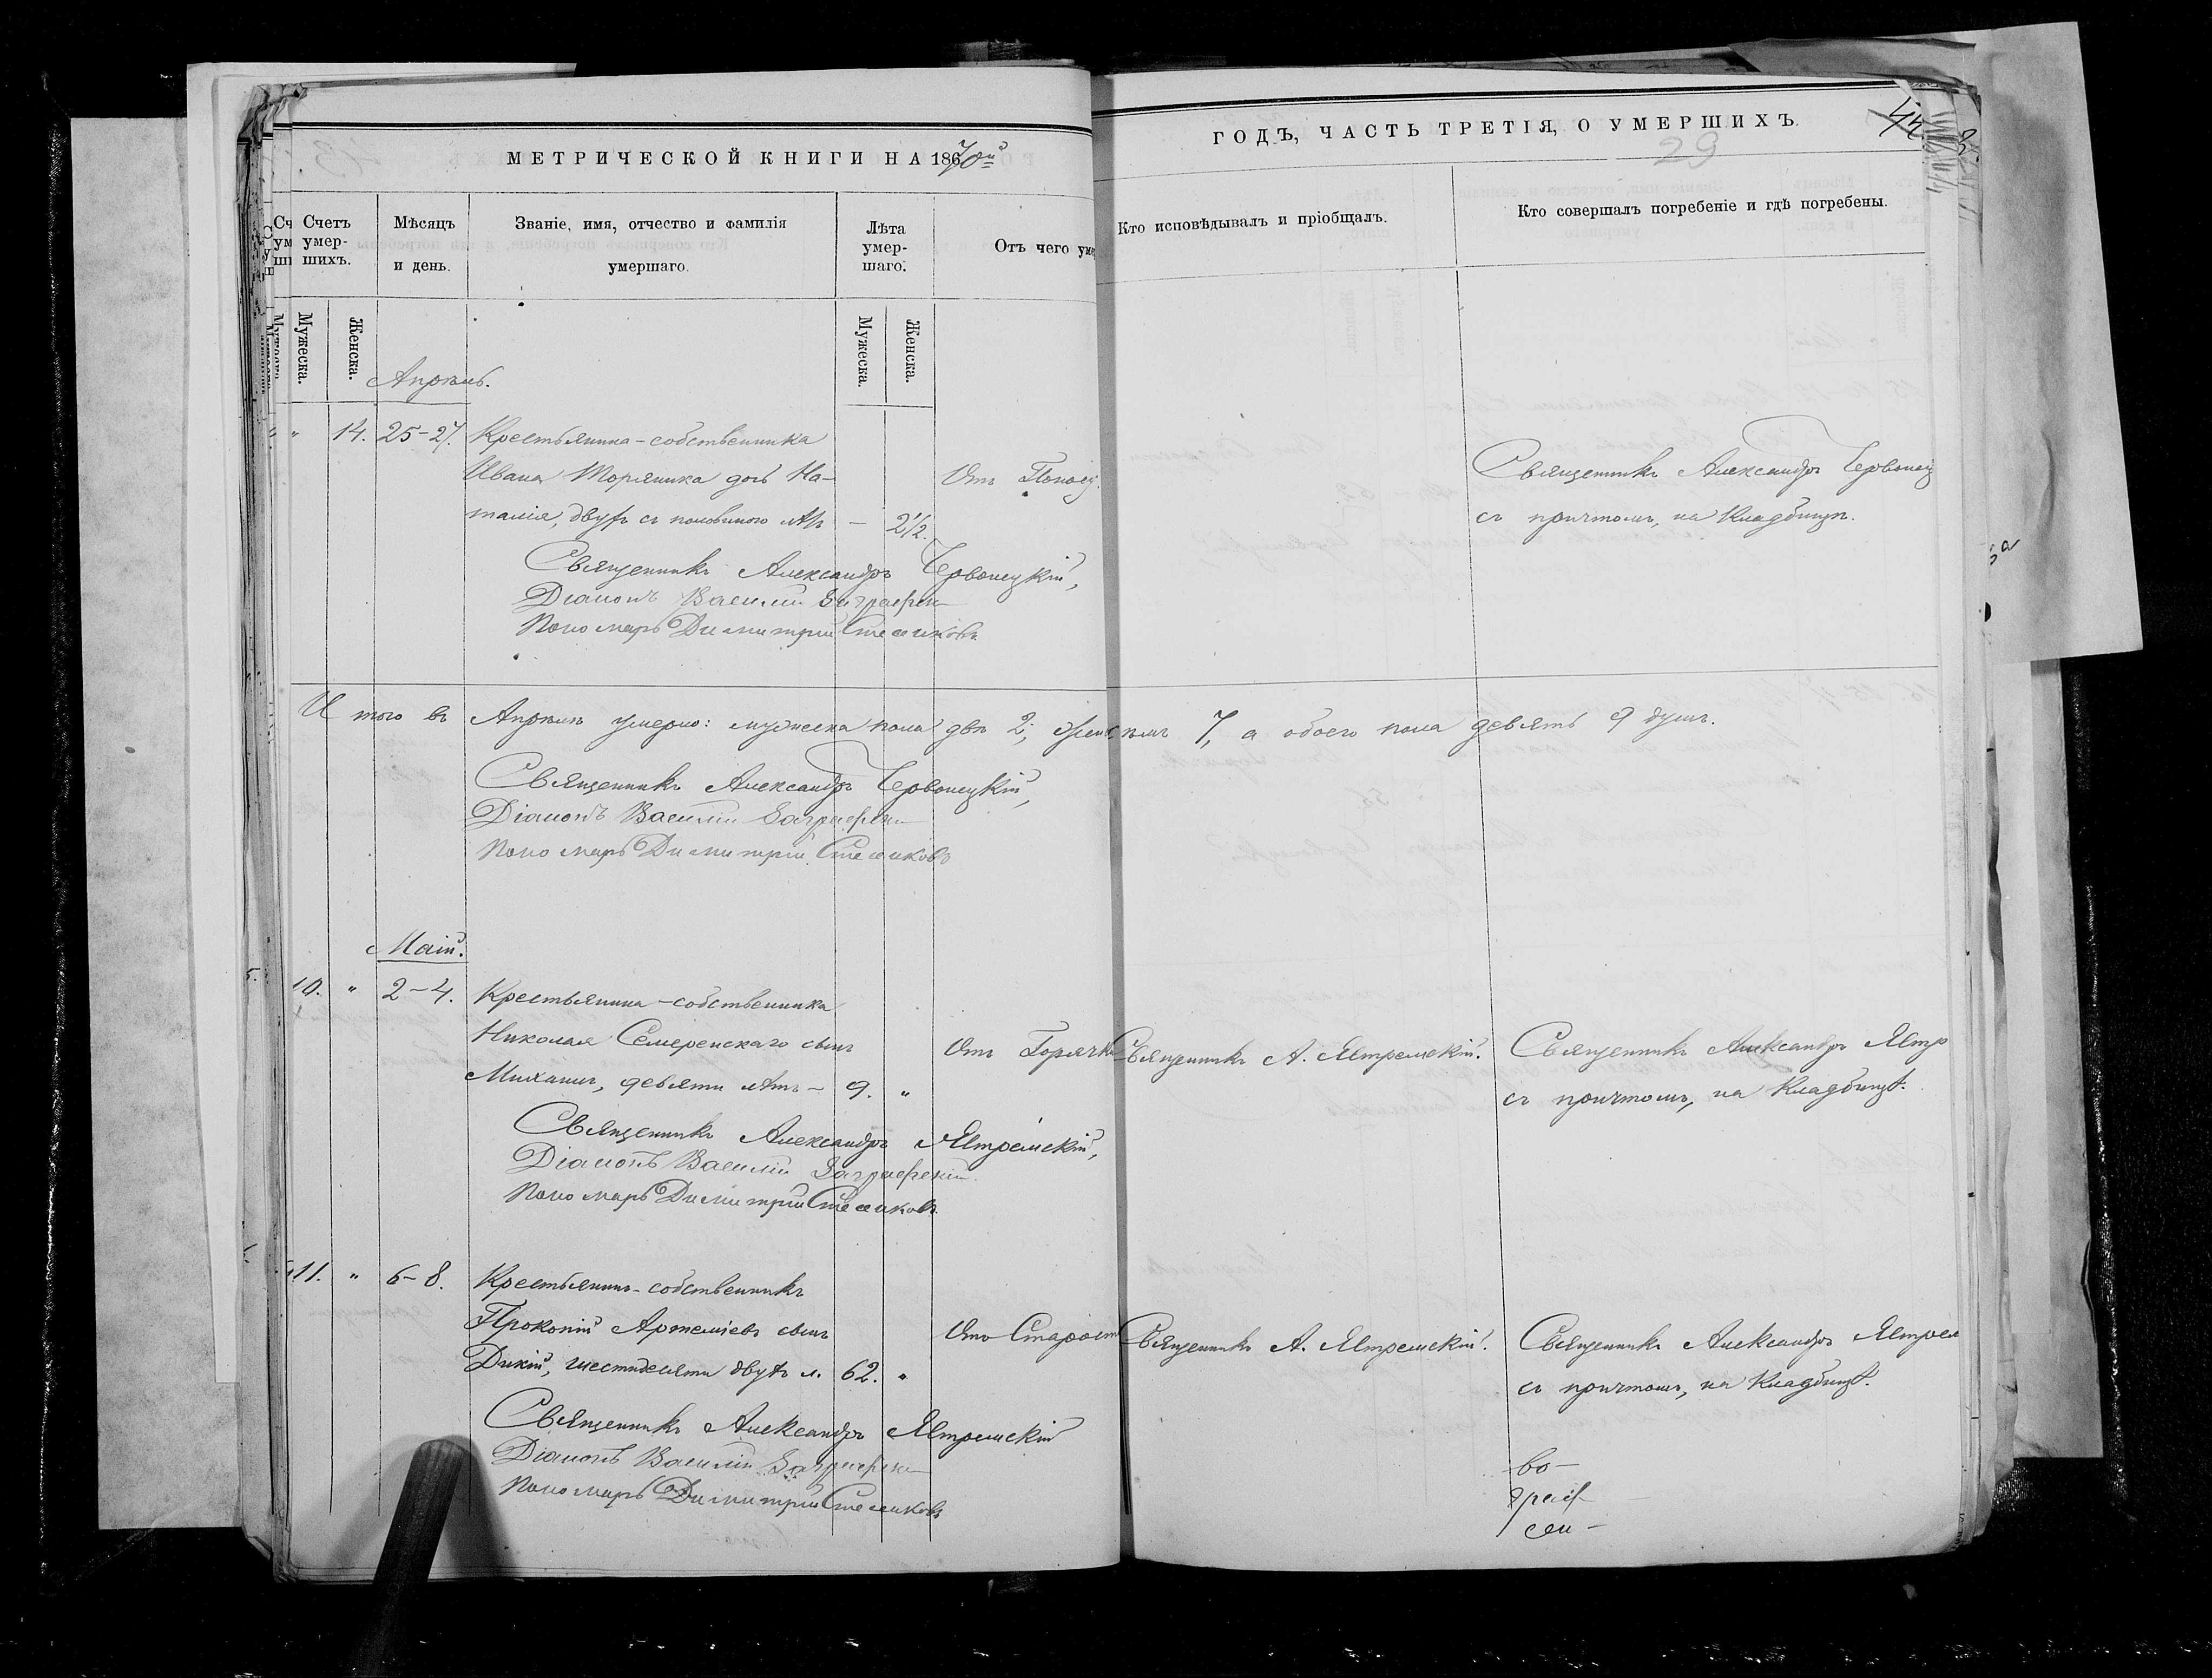 МЕТРИЧЕСКОЙ КНИГИ НА 1870й
Счетъ умер-шихъ.
Мѣсяцъ и день.
Званіе, имя, отчество и фамилія умершаго.
Лѣта умер-шаго.
Отъ чего уме
Мужеска.
Женска.
Мужеска.
Женска.
Апрѣль.
" 14. 25-27. Крестьянина-собственника
Ивана дочь На-
талія, двухъ съ половиною лѣтъ — 2½.
Отъ
Священникъ Александръ Червонецкій,
Діаконъ Василій
Пономарь Димитрій
И того въ Апрѣлѣ умерло: мужеска пола два 2; женск.
Священникъ Александръ Червонецкій,
Діаконъ Василій
Пономарь Димитрій
Маій.
10. " 2-4. Крестьянина-собственника
Николая Семеренскаго сынъ
Михаилъ, девяти лѣтъ — 9. "
Отъ Горячк
Священникъ Александръ Ястремскій,
Діаконъ Василій
Пономарь Димитрій
11. " 6-8. Крестьянинъ-собственникъ
Прокопій Артеміевъ сынъ
Дикій, шестидесяти двухъ л. 62. "
Отъ Старост
Священникъ Александръ Ястремскій
Діаконъ Василій
Пономарь Димитрій
ГОДЪ, ЧАСТЬ ТРЕТІЯ, О УМЕРШИХЪ.
29
Кто исповѣдывалъ и пріобщалъ.
Кто совершалъ погребеніе и гдѣ погребены.
Священникъ Александръ Червонец
съ причтомъ, на Кладбищѣ.
7, а обоего пола девять 9 душъ.
Священникъ А. Ястремскій.
Священникъ Александръ Ястр
съ причтомъ, на Кладбищѣ.
Священникъ А. Ястремскій.
Священникъ Александръ Ястрем
съ причтомъ, на Кладбищѣ.
во-